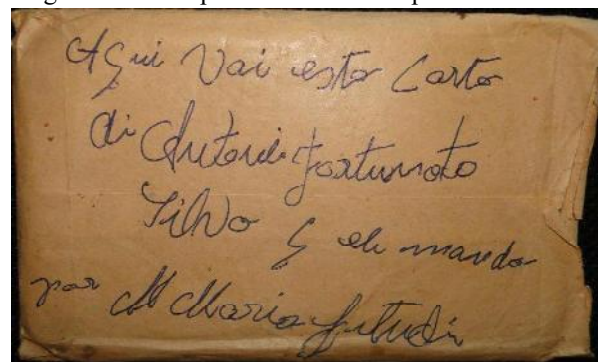 Aqui Vai esta Carta
di Antonio Fortunato
Silva q ele manda
par M Maria